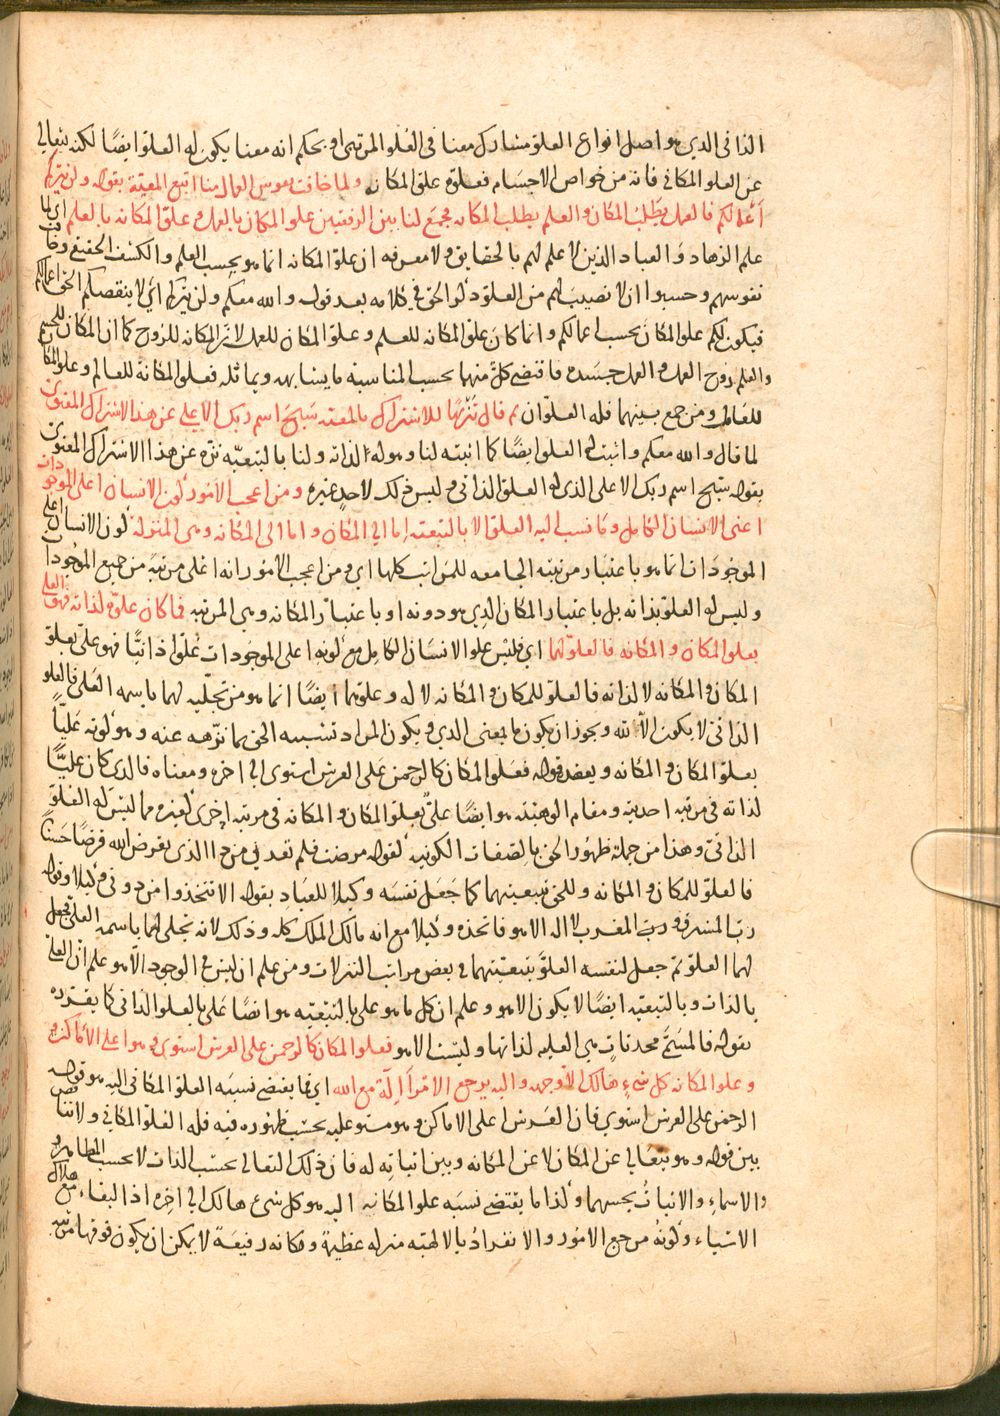 الذاتى الذى هو اصل انواع العلو مشاركٌ معنا فى العلو المرتبى او بحكم انه معنا يكون له العلو ايضًا لكنه يتعالى
عن العلو المكانى فانه من خواص الاجسام فعلوه علو المكانه ولما خافت نفوس العمال منا اتبع المعية بقوله ولن يتركم
أعمالكم فالعمل يطلب المكان والعلم يطلب المكانه فجمع لنا بين الرفعتين علو المكان بالعمل وعلو المكانه بالعلم اى لما
علم الزهاد والعباد الذين لا علم لهم بالحقايق ولا معرفه ان علو المكانه انما هو بحسب العلم والكشف الحقيقى وخافت
نفوسهم وحسبوا ان لا نصيب لهم من العلو ذكر الحق فى كلامه بعد قوله والله معكم ولن يتركم اى لا ينقصكم الحق اعمالكم
فيكون لكم علو المكان بحسب اعمالكم وانما كان علو المكانه للعلم وعلو المكان للعمل لان المكانه للروح كما ان المكان للجسم
والعلم روح العمل والعمل جسده فاقتضى كلٌّ منهما بحسب المناسبه ما يشابهه ويماثله فعلو المكانة للعالم وعلو المكان
للعامل ومن جمع بينهما فله العلوان ثم قال تنزيهًا للاشتراك بالمعيه سبّح اسم ربك الاعلى عن هذا الاشتراك المعنوى
لما قال والله معكم واثبت له العلو ايضًا كما اثبته لنا وهو له لذاته ولنا بالتبعيّه نزّه عن هذا الاشتراك المعنوى
بقوله سبّح اسم ربك الاعلى الذى له العلو الذاتى وليس ذلك لاحدٍ غيره ومن اعجب الامور كون الانسان اعلى الموجودات
اعنى الانسان الكامل وما نسب اليه العلو الا بالتبعيه اما الى المكان واما الى المكانه وهى المنزلة كون الانسان اعلى
الموجودات انما هو باعتبار مرتبته الجامعه للمراتب كلها اى ومن اعجب الامور انه اعلى مرتبة من جميع الموجودات
وليس له العلو بذاته بل باعتبار المكان الذى هو دونه او باعتبار المكانه وهى المرتبه فما كان علوه لذاته فهو العلى
بعلو المكان والمكانه فالعلو لهما اى فليس علو الانسان الكامل مع كونه اعلى الموجودات علوّا ذاتيًّا فهو علىّ بعلوّ
المكان والمكانه لا لذاته فالعلو للمكان والمكانه لا له وعلوّهما ايضًا انما هو من تجلّيه لهما باسمه العلى فالعلو
الذاتى لا يكون الا لله ويجوز ان يكون ما بمعنى الذى ويكون المراد تشبيه الحق بما نزّهه عنه وهو كونه عليًّا
بعلو المكان والمكانه ويعضد قوله فعلو المكان كالرحمن على العرش استوى الى اخره ومعناه فالذى كان عليًّا
لذاته فى مرتبه احديته ومقام الوهيته هو ايضًا علىّ بعلو المكان والمكانه فى مرتبه اخرى كغيره مما ليس له العلوّ
الذاتى وهذا من جملة ظهور الحق بالصفات الكونيه كقوله مرضت فلم تعدنى من ذا الذى يقرض الله قرضًا حَسنًا
فالعلو للمكان والمكانه وللحق بتبعيتهما كما جعل نفسه وكيلا للعباد بقوله الا تتخذوا من دونى وكيلا وقوله
رب المشرق ورب المغرب لا اله الا هو فاتخذه وكيلا مع انه مالك الملك كله وذلك لانه تجلى لهما باسمه العلى فجعل
لهما العلو ثم جعل لنفسه العلوّ بتبعيتهما فى بعض مراتب التنزلات ومن علم ان ليس فى الوجود الا هو علم ان العلى
بالذات وبالتبعيه ايضًا لا يكون الا هو وعلم ان كل ما هو على بالتبعيّه هو ايضًا علىّ بالعلو الذاتى كما يقرره
بقوله فالمسمّى محدثاتٍ هى العليه لذاتها وليست الا هو فعلو المكان كالرحمن على العرش استوى وهو اعلى الاماكن و
وعلو المكانه كل شىءٍ هالك الا وجهه واليه يرجع الامر أاله مع الله اى فما يقتضى نسبة العلو المكانى اليه هو قوله
الرحمن على العرش استوى فان العرش اعلى الاماكن وهو مستو عليه بحسب ظهوره فيه فله العلو المكانى ولا تناقض
بين قوله وهو يتعالى عن المكان لا عن المكانه وبين اثباته له فان ذلك التعالى بحسب الذات لا بحسب المظاهر و
والاسماء والاثبات بحسبهما وكذا ما يقتضى نسبه علو المكانه اليه هو كل شىء هالك الى اخره اذ البقاء مع هلاك
الاشياء وكونه مرجع الامور والانفراد بالالهيه منزله عظيمة ومكانه رفيعة لا يمكن ان يكون فوقها مرتبه